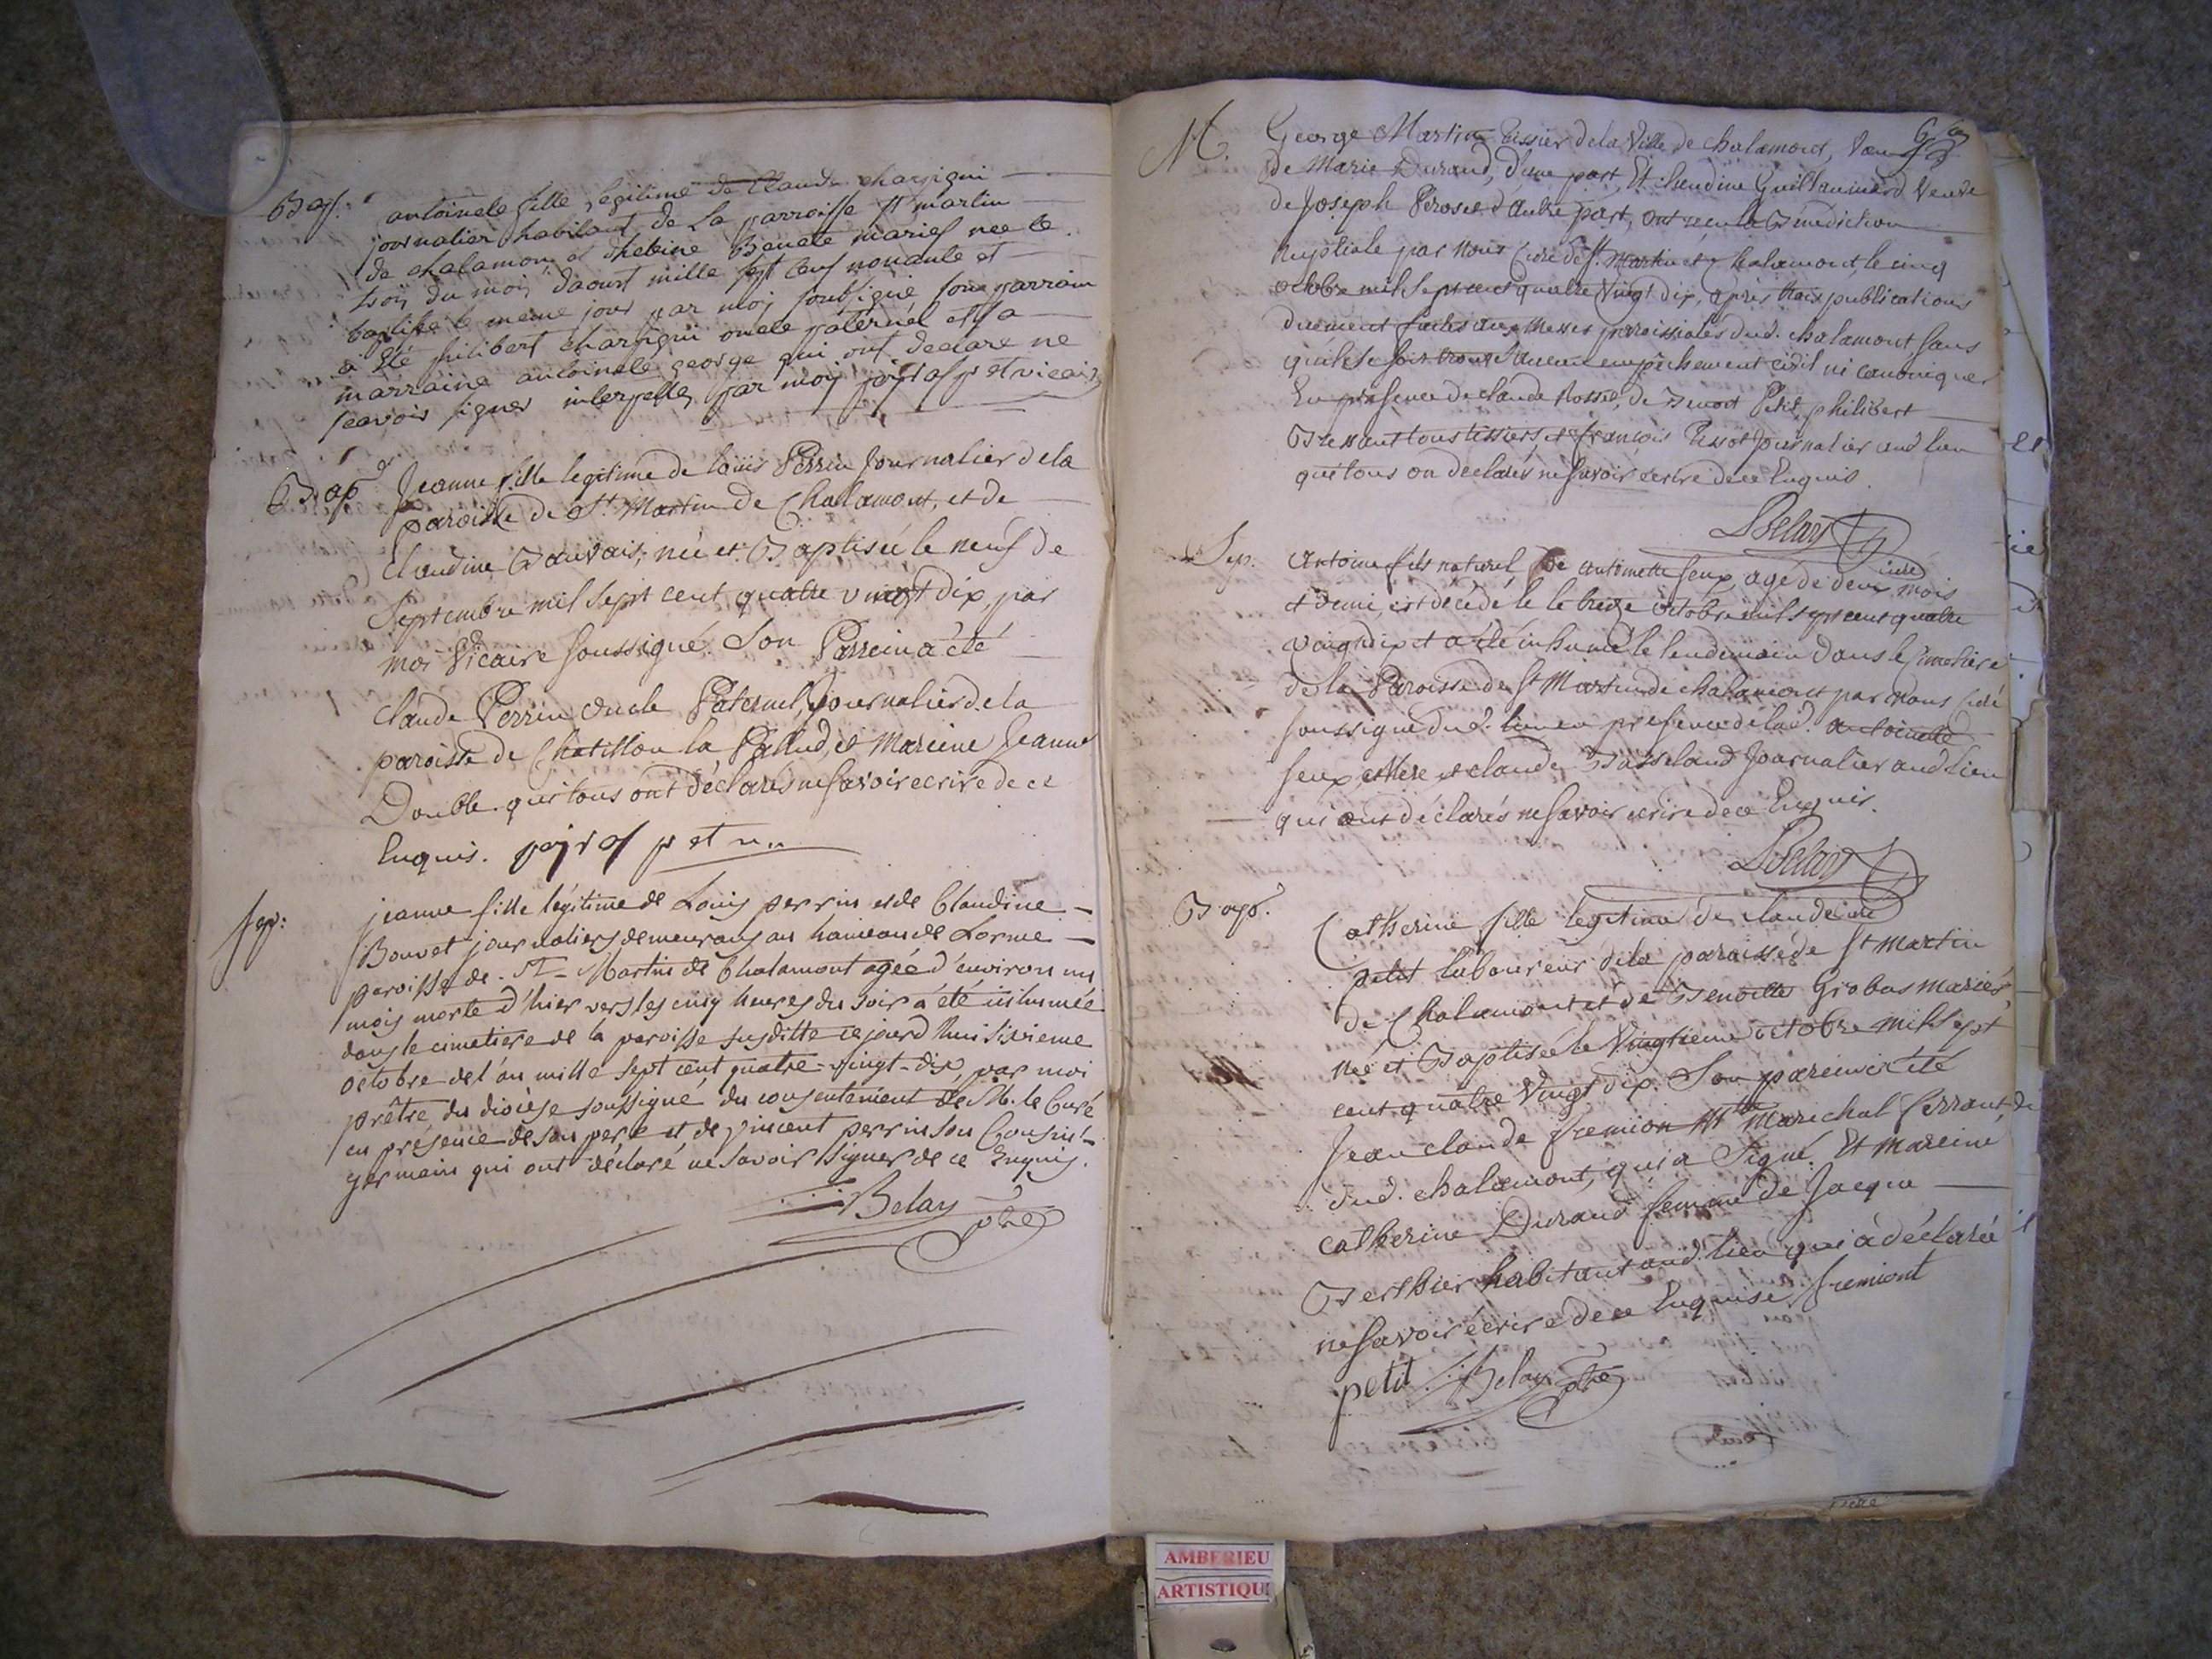 Bap. antoinete fille legitime de Claude charpigni
journalier habitant de La parroisse st martin
de chalamon et thebine Benete mariés nee le
trois du mois daoust mille sept cens nonante et
baptisé le meme jour par moy soubsigné son parrain
à été philibert charpigni oncle paternel et sa
marraine antoinete george qui ont declare ne
scavoir signer interpellés par moy
Bap. Jeanne fille legitime de loüis Perrin Journalier dela
paroisse de St. Martin de Chalamont, et de
Claudine Bauvais, née et Baptisée le neuf de
Septembre mil sept cent quatre vingt dix, par
moi Vicaire soussigné. Son Parrein a été
Claude Perrin oncle Paternel, Journalier dela
paroisse de Chatillon la Pallud, et Mareine Jeanne
Double qui tous ont déclarés ne savoir ecrire de ce
Enquis.
Sep: jeanne fille légitime de Louis perrin et de Claudine
Bouvet journaliers demeurans au hameau de Lorme
paroisse de St. Martin de Chalamont agée d'environ un
mois morte d'hier vers les cinq heures du soir a été inhumée
dans le cimetiere de la paroisse susditte ce jourd'hui sixieme
octobre de l'an mille sept cent quatre-vingt-dix, par moi
prêtre du diocèse soussigné, du consentement de M. le Curé
en présence de son pere et de vincent perrin son Cousin
germain qui ont déclaré ne savoir signer de ce Enquis.
Belay
ptre
M. George Martin tissier dela Ville de chalamont, Veuf
de Marie Durand, d'une part, Et Claudine Guillaumard Veuve
de Joseph Peroset d'autre part, ont reçu la Bénédiction
Nuptiale par Nous Curé de St. Martin de Chalamont, le cinq
octobre mil sept cent quatre Vingt dix, après trois publications
duement faites aux Messes paroissiales dud. chalamont sans
qu'il se soit trouvé aucun empêchement civil ni canonique
En presence de claude Rosset, de Benoit Petit, philibert
Bressant tous tissiers et francois Pissot Journalier aud. lieu
qui tous on déclarés ne savoir ecrire de ce Enquis.
LBelay
curé
Sep. Antoine fils naturel de antoinette feux, agé de deux mois
et demi, est décédé le le treize octobre mil sept cent quatre
vingt dix et a été inhumé le lendemain dans le Cimetiere
de la Paroisse de St Martin de chalamont par Nous Curé
soussigné dud. lieu en presence de lad. antoinette
feux, et claude Basseland Journalier aud lieu
qui ont déclarés ne savoir ecrire de ce Enquis.
LBelay
curé
Bap. Catherine fille legitime de claude
petit laboureur dela paroisse de St martin
de Chalamont et de Benoitte Grobas mariés,
née et Baptisée le Vingtieme octobre mil sept
cent quatre Vingt dix. Son parein a été
Jean claude fremion Mtre Marechal ferrant de
dud. chalamont, qui a signé. Et mareine
catherine Durand femme de Jacque
Berthier habitant aud. lieu qui à déclarée
ne savoir écrire de ce Enquise fremiont
petit Belay ptre
AMBERIEU
ARTISTIQU